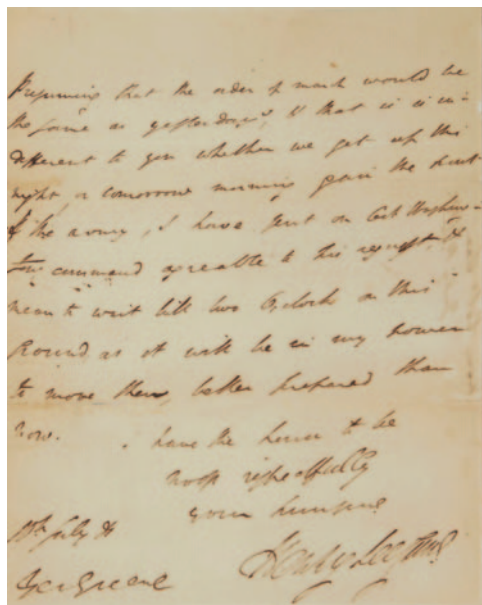 Presuming that the order of march would be
the same as yesterdays, & that it is in-
different to you whether we get up this
night, or tomorrow morning the
of the army, I have sent on Col. Washing-
tons command agreable to his request. &
mean to wait till two O,clock on this
Ground, as it will be in my power
to move then, better prepared than
now. I have the honor to be
most respectfully
your
July
Gen Greene
Henry Lee Jun